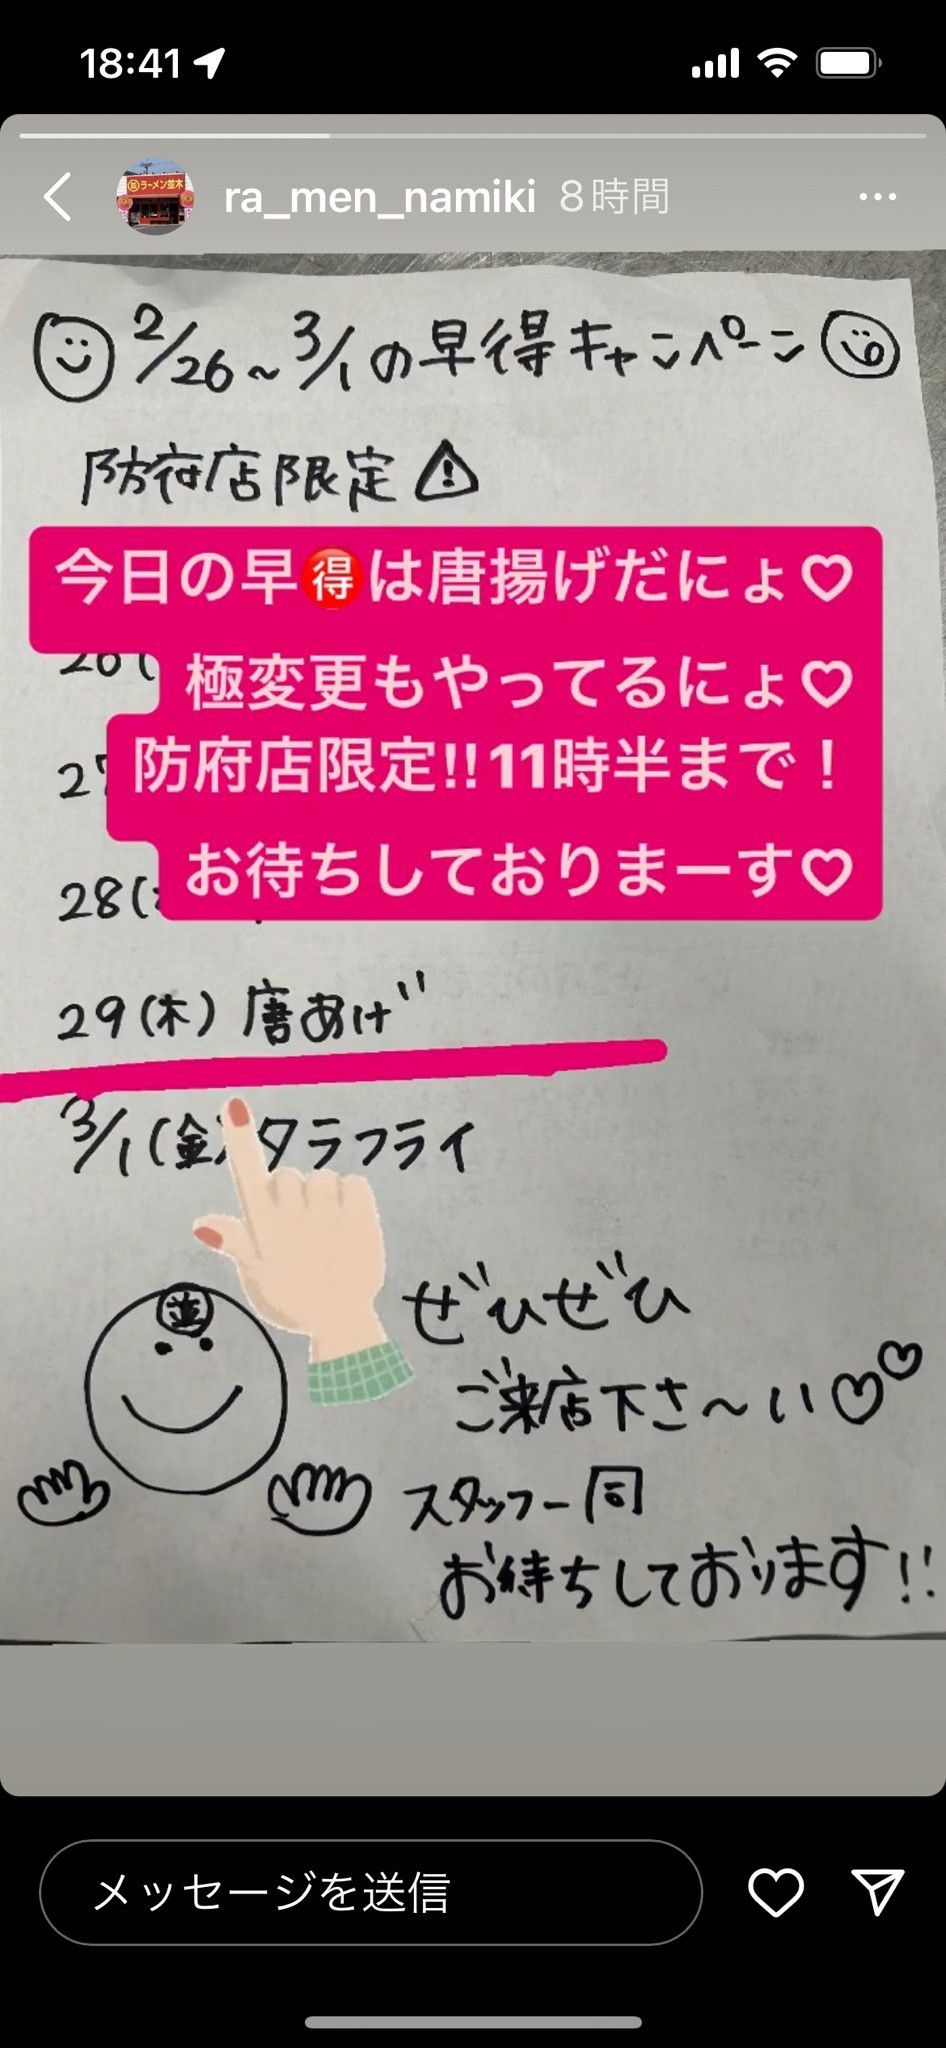 18:41
ra_men_namiki 8時間
ラーメン並木
2/26~3/1の早得キャンペーン
防府店限定
今日の早得は唐揚げだにょ♡
極変更もやってるにょ♡
防府店限定!!11時半まで!
お待ちしておりまーす♡
26(
27
28(
29(木)唐あげ
3/1(金)タラフライ
並
ぜひぜひ
ご来店下さ〜い♡♡
スタッフ一同
お待ちしております!!
メッセージを送信